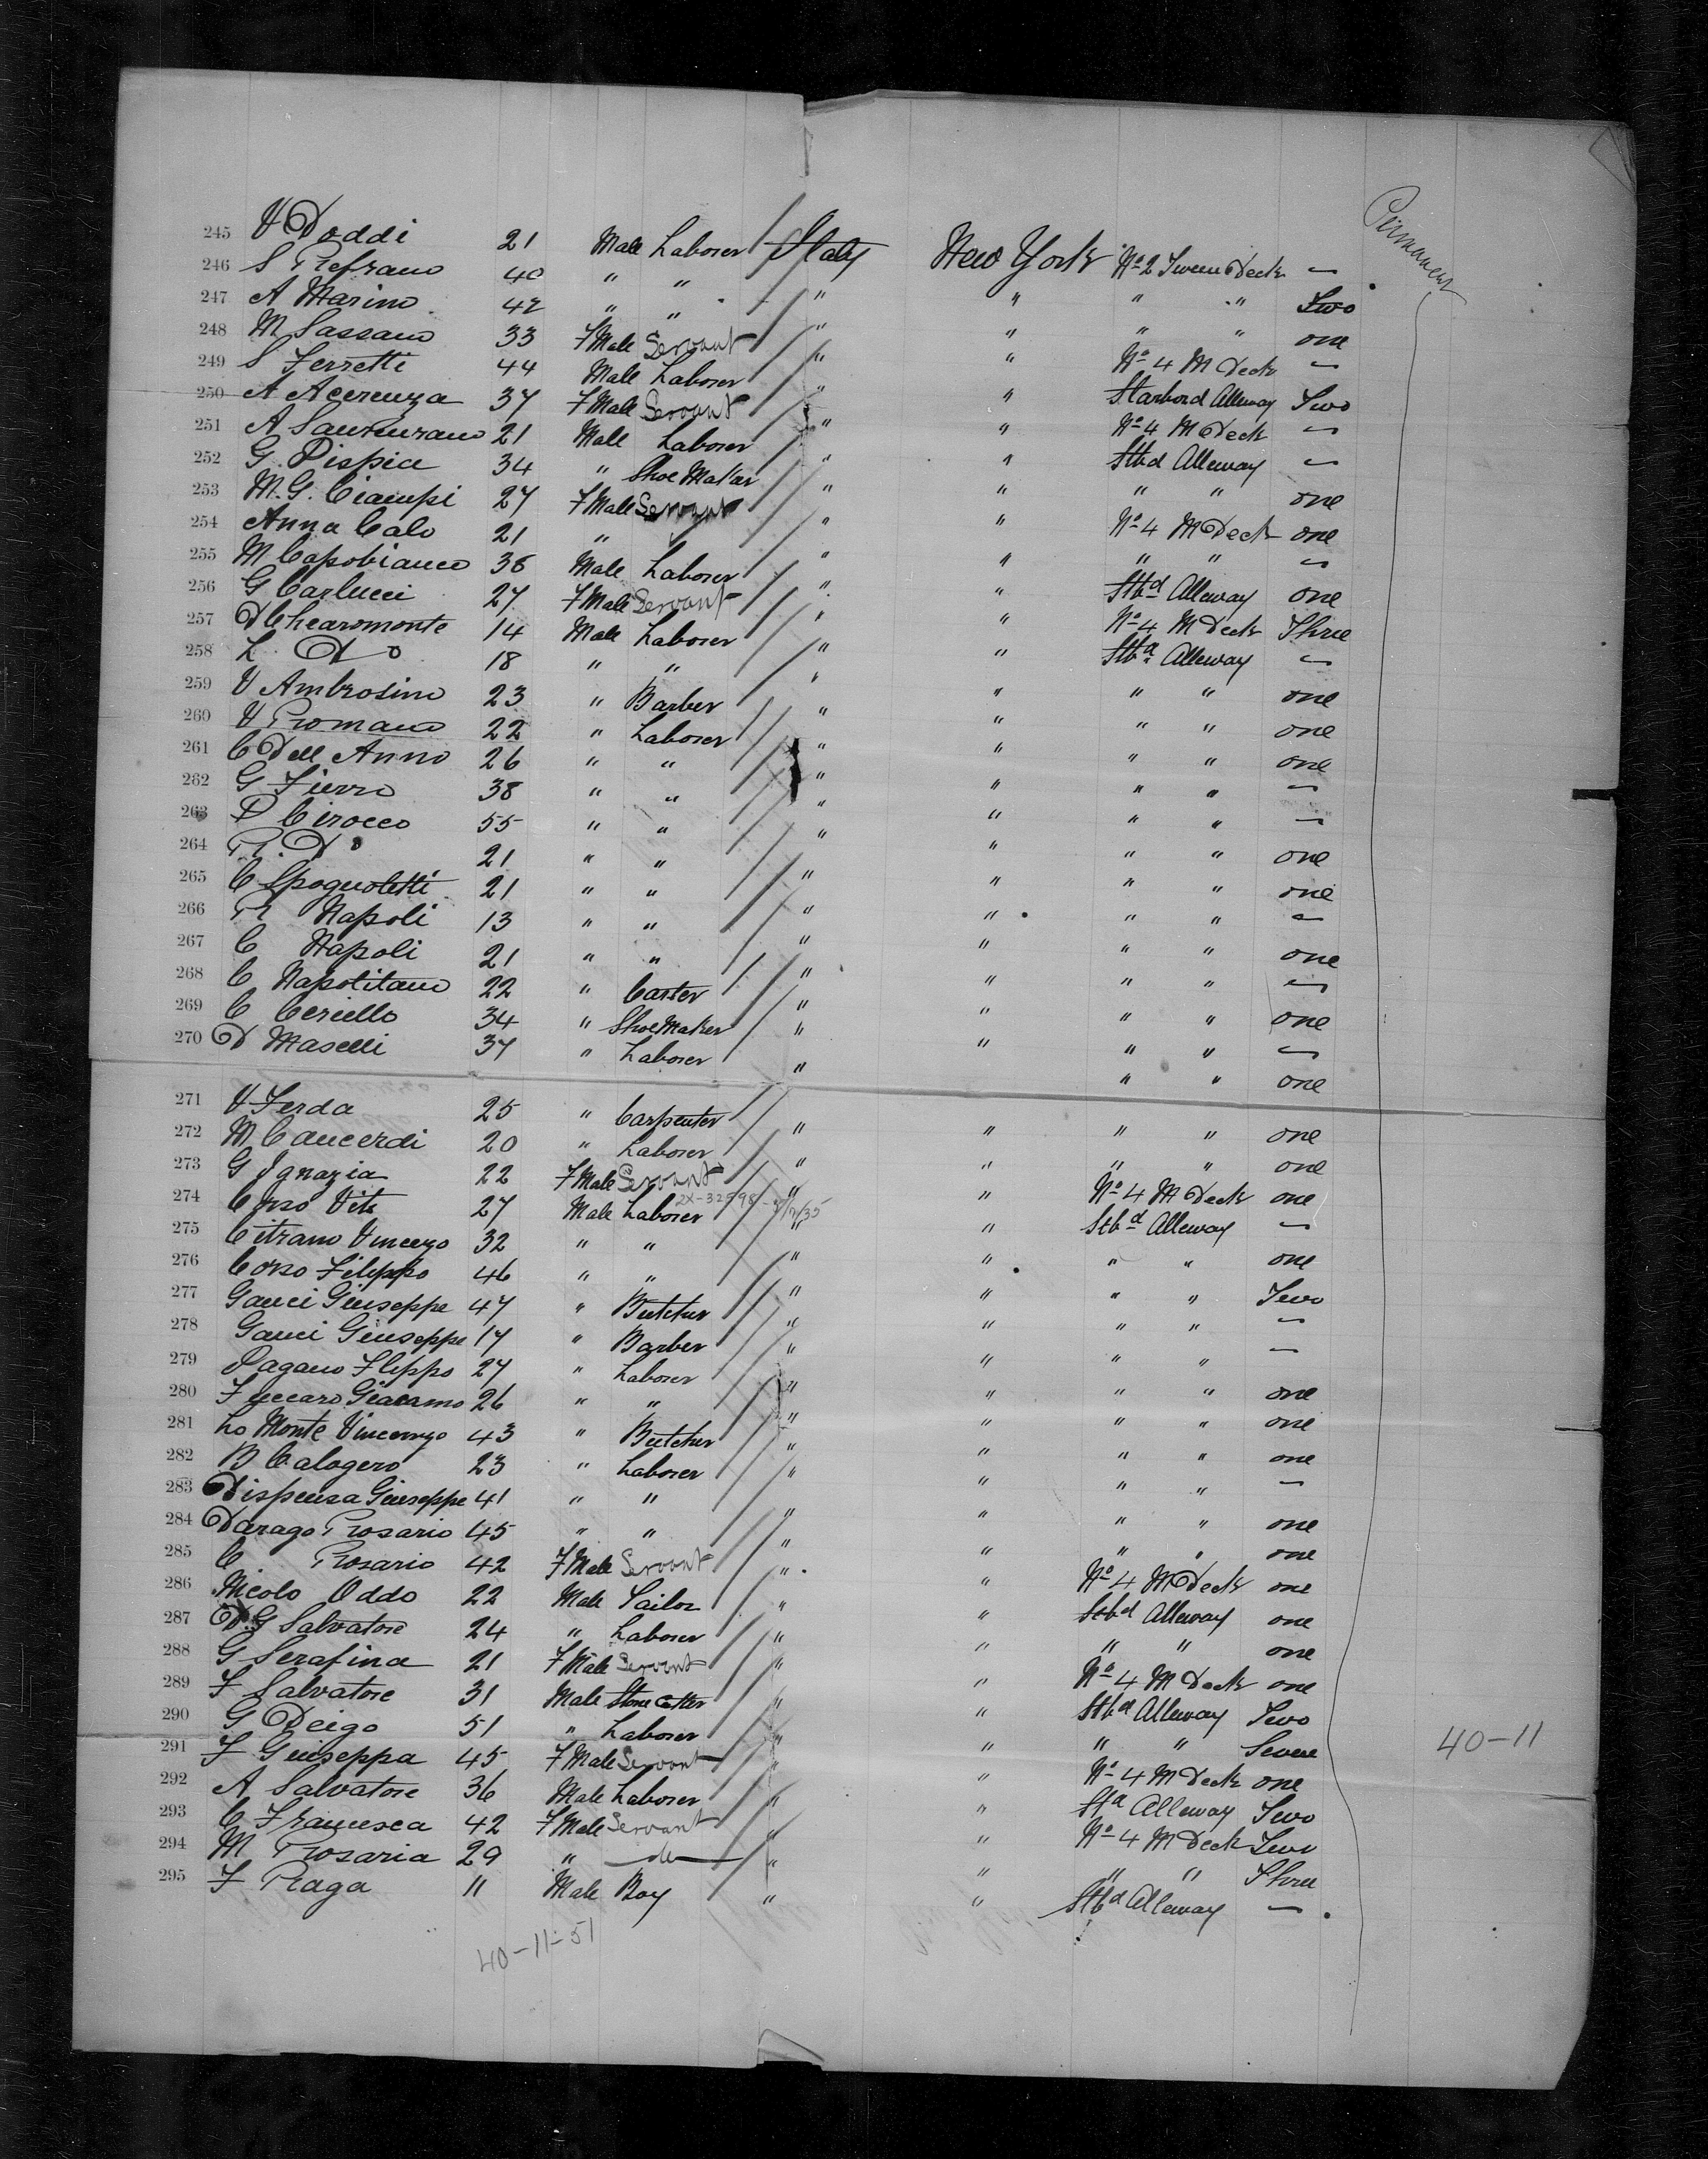 Permanent
245 V Doddi 21 Male Laborer Italy New York No 2 Tween Deck —
246 S Refrano 40 " " " " " " Two
247 A Marino 42 " " " " " " one
248 M Sassano 33 FMale Servant " " No 4 M Deck —
249 S Ferretti 44 Male Laborer " " Starbord Alleway Two
250 A Acerenza 37 FMale Servant " " No 4 M Deck —
251 A Santurzano 21 Male Laborer " " Stbd Alleway —
252 G. Pispia 34 " Shoe Maker " " " " one
253 M. G. Ciampi 27 FMale Servant " " No 4 M Deck one
254 Anna Calo 21 " " " " " —
255 M Capobianco 38 Male Laborer " " Stbd Alleway one
256 G Carlucci 27 FMale Servant " " No 4 M Deck Three
257 D Chearomonte 14 Male Laborer " " Stbd Alleway —
258 L. Do 18 " " " " " " one
259 V Ambrosino 23 " Barber " " " " one
260 V Romano 22 " Laborer " " " " one
261 C Dell Anno 26 " " " " " " —
262 G Fierro 38 " " " " " " —
263 P Cirocco 55 " " " " " " one
264 R. Do 21 " " " " " " one
265 C Spagnoletti 21 " " " " " " —
266 R Napoli 13 " " " " " " one
267 C Napoli 21 " " " " " " —
268 C Napolitano 22 " Carter " " " " one
269 C Ceriello 34 " Shoe Maker " " " " —
270 D Maselli 37 " Laborer " " " " one
271 V Ferda 25 " Carpenter " " " " one
272 M Caucerdi 20 " Laborer " " " " one
273 G Ignazia 22 FMale Servant " " No 4 M Deck one
274 Corso Vito 27 Male Laborer 2X-32598 " " Stbd Alleway —
275 Citrano Vincenzo 32 " " " " " " one
276 Corso Filippo 46 " " " " " " Two
277 Gauci Giuseppe 47 " Butcher " " " " —
278 Gauci Giuseppe 17 " Barber " " " " —
279 Pagano Flippo 27 " Laborer " " " " one
280 Fuccaro Giacamo 26 " " " " " " one
281 Lo Monte Vincenzo 43 " Butcher " " " " one
282 B Calogero 23 " Laborer " " " " —
283 Dispensa Giuseppe 41 " " " " " " one
284 Darago Rosario 45 " " " " " " one
285 C Rosario 42 FMale Servant " " No 4 M Deck one
286 Nicolo Oddo 22 Male Sailor " " Stbd Alleway one
287 D. G Salvatore 24 " Laborer " " " " one
288 G Serafina 21 FMale Servant " " No 4 M Deck one
289 F Salvatore 31 Male Stone Cutter " " Stbd Alleway Two
290 G Deigo 51 " Laborer " " " " Seven
291 F Guiseppa 45 FMale Servant " " No 4 M Deck one
292 A Salvatore 36 Male Laborer " " Std Alleway Two
293 C Francesca 42 FMale Servant " " No 4 M Deck Two
294 M Rosaria 29 " do " " " " Three
295 F Raga 11 Male Boy " " Stbd Alleway —
40-11
40-11-51